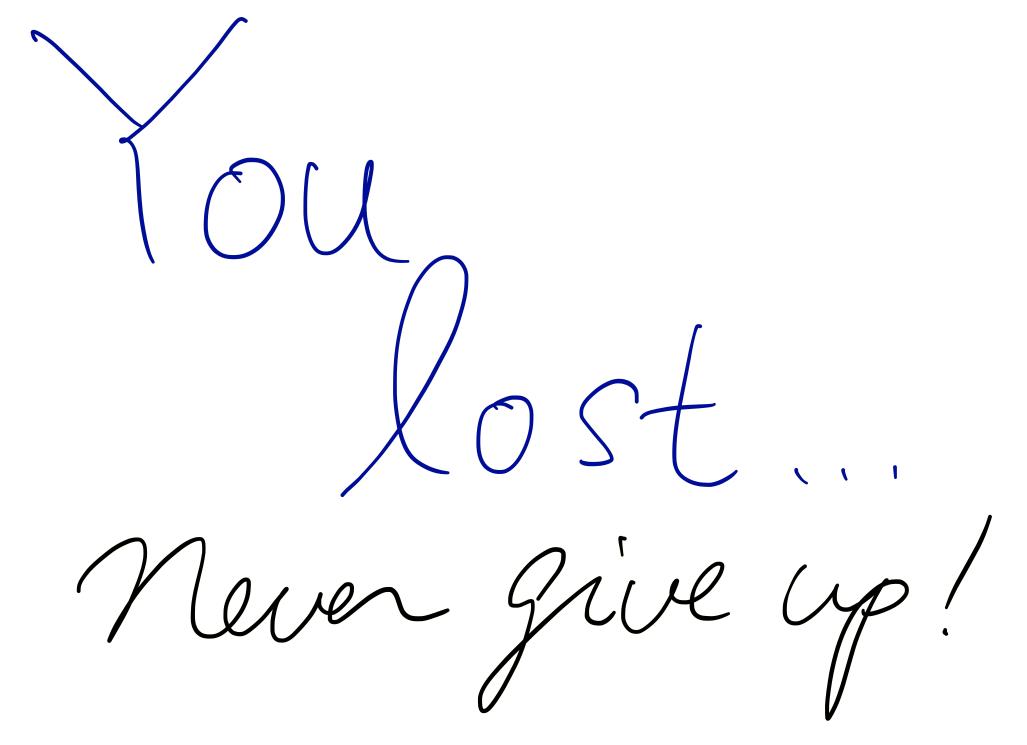 You
lost...
Never give up!